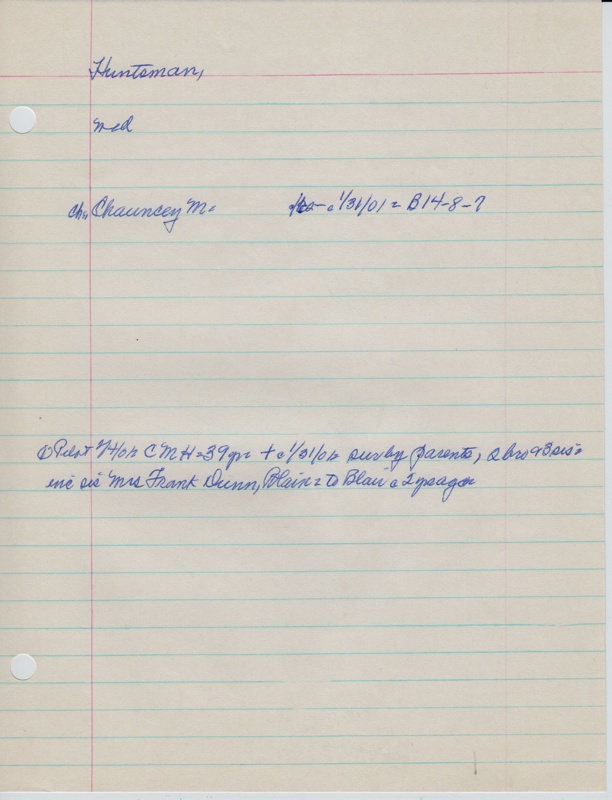 Huntsman,
md
ch,, Chauncey M. - c 1/31/01 = B14-8-7
① Pilot 2/14/01= CMH=39yr= + c 1/31/01= sur by parents, 2 bro & 3 sis=
inc sis Mrs Frank Dunn, Blair= to Blair c 2 yrs ago=